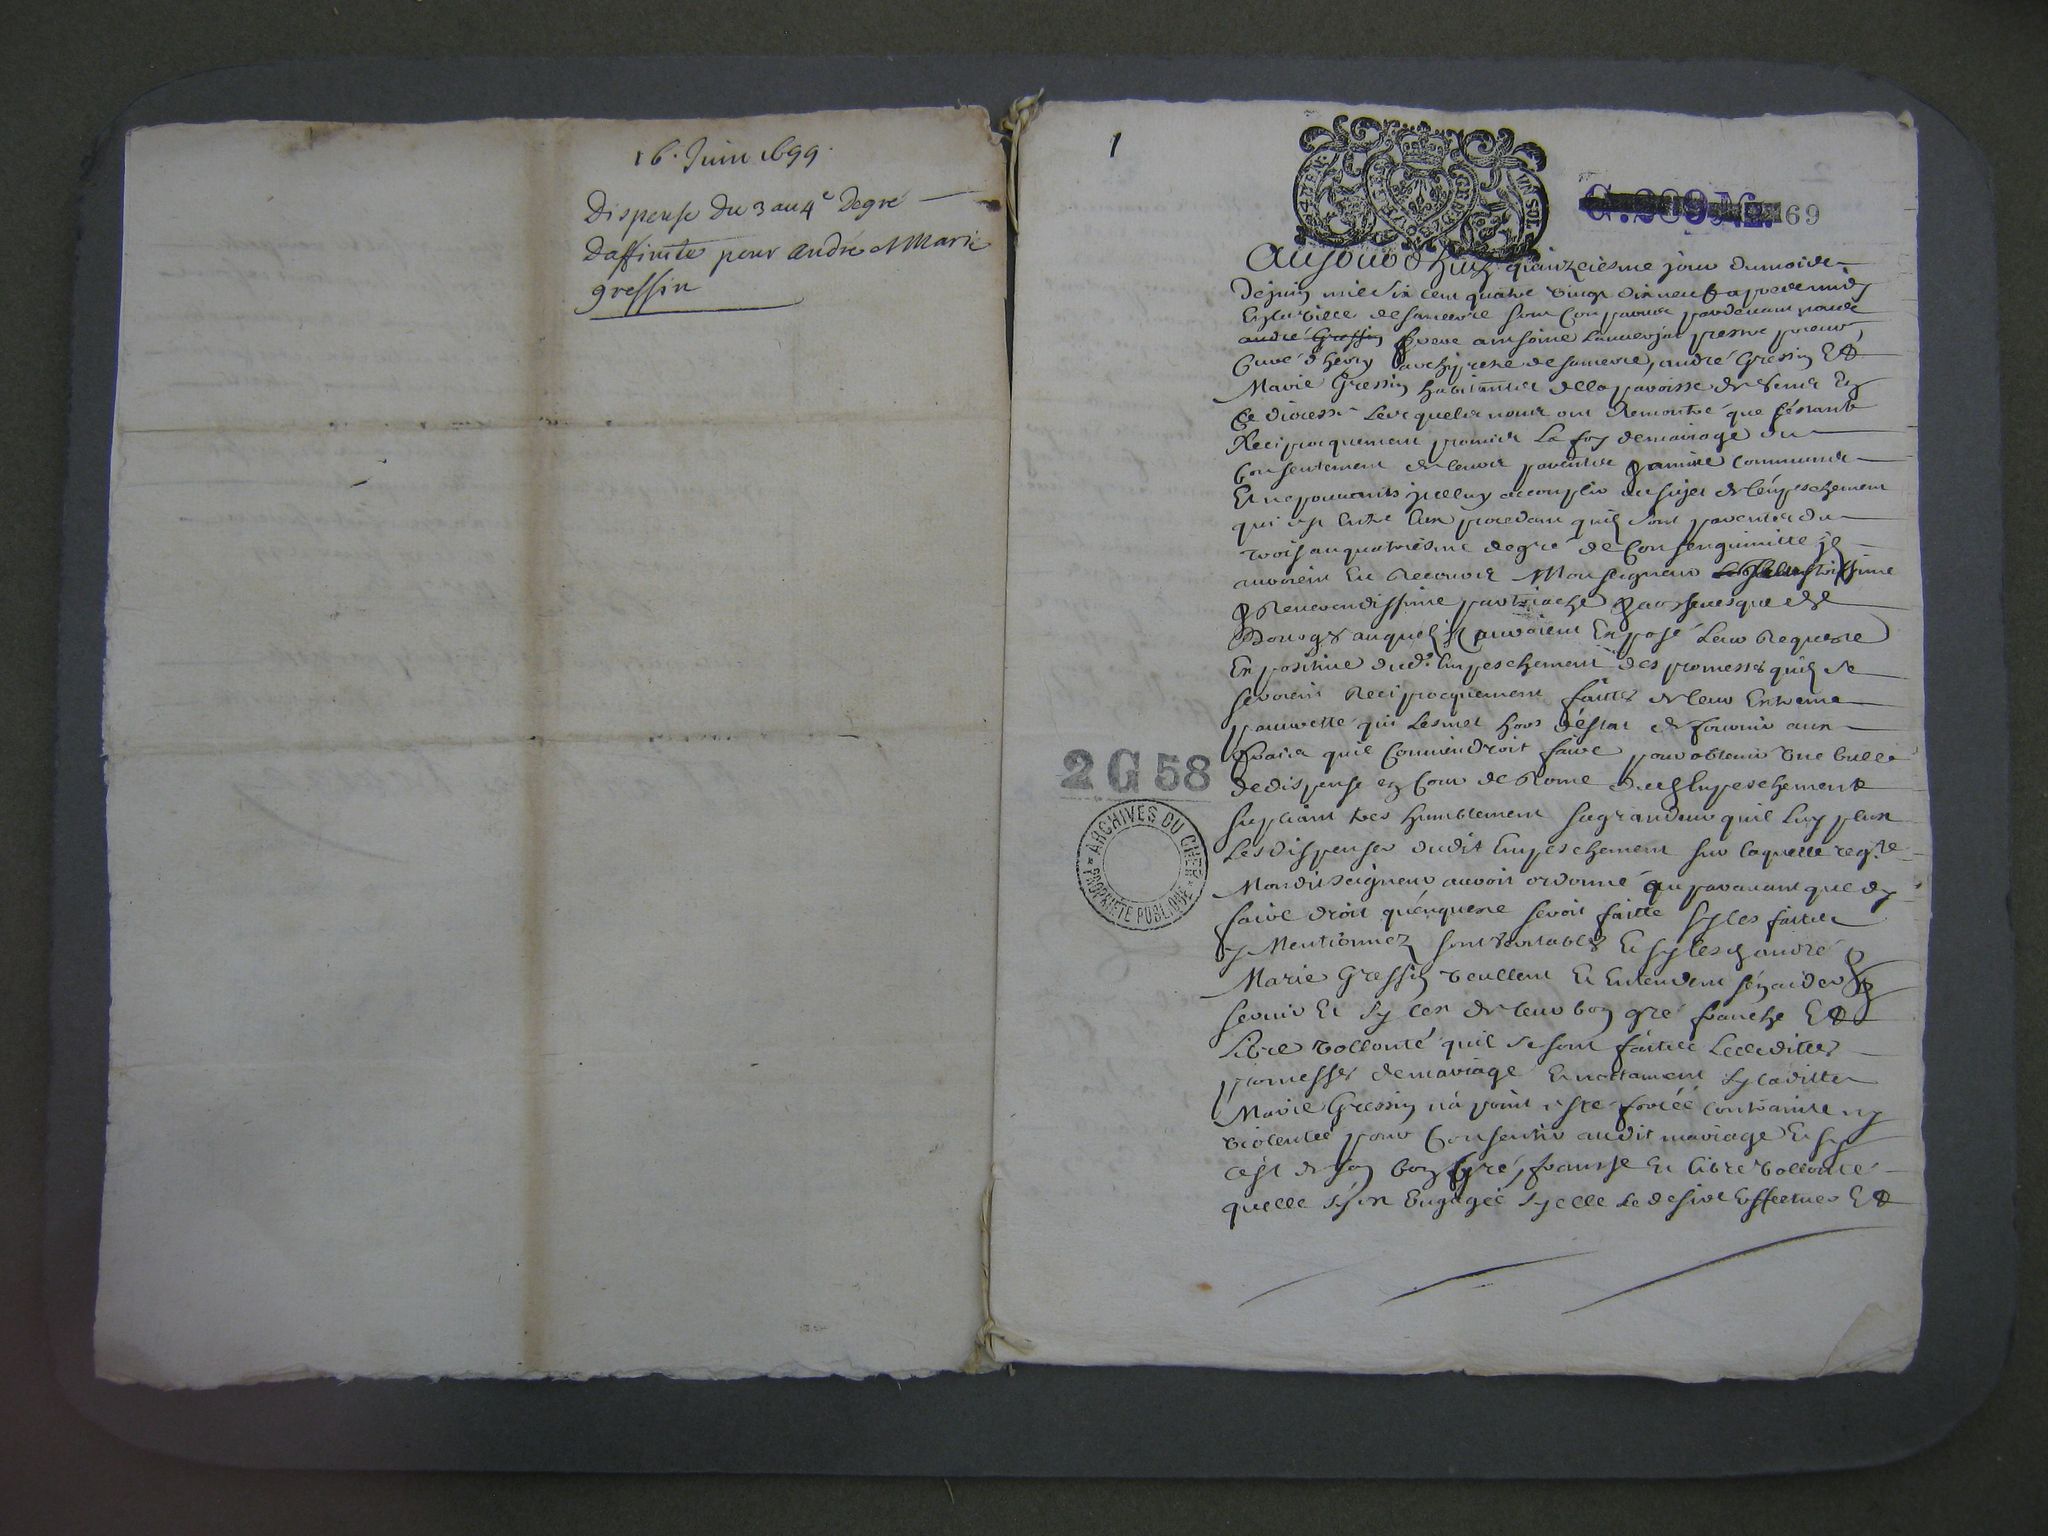 16. Juin 1699.
Dispense du 3 au 4e degré
daffinité pour andré et Marie
gressin
1
UN SOL
G. 909 N. 69
Aujourdhuy quinzeiesme jour du mois de
de juin mil six cent quatre vingt dix neuf apres midy
En la ville de sancerre sont comparus pardevant nous
andré Gressin frere antoine prestre prieur
Curé d'hery archiprestre de sancerre, andré Gressin Et
Marie Gressin habitants de la paroisse de Et
Ce diocesse Lesquelles nous ont Remontré que s'estants
Reciproquement promis La foy de mariage du
Consentement de leurs parentes & amies Communes
Et ne pouvants icelluy accomplir au sujet de l'enpeschement
qui est Entre Eux procedant quils sont parentes du
trois au quatriesme degré de Consenguinitte ils
auroient Eu Recours a Monseigneur
& Reverendissime partriache & archevesque de
Bourges auquel ils auroient Exposé Leur Requeste
Expositive dud. Empeschement des promesses quils se
seroient Reciproquement faittes de leur Extreme
pauvretté qui Les met hors d'estat de fournir aux
fraix quil Conviendroit faire pour obtenir une bulle
de dispense en Cour de Rome dud Empeschement
supliant tres humblement sa grandeur quil Luy plux
Les dispenser dudit Empeschement sur laquelle reqte
Mondit seigneur auroit ordonné qu paravant que dy
faire droit qu'enqueste seroit faitte sy les faittes
y Mentionnez sont veritables Et sy lesd andré &
Marie Gressin veullent Et Entendent s'en aider &
servir Et sy cex de leur bon gré franche Et
Libre vollonté quil se sont faittes Lesdittes
promesses de mariage Et nottament sy laditte
Marie Gressin n'a point esté forcée contrainte ny
violentée pour Consentir audit mariage Et sy
c'est de son bon gré, franche Et libre vollonté
quelle s'y est Engagée sy elle Le desire Effectuer Et
2 G 58
ARCHIVES DU CHER
PROPRIETE PUBLIQUE